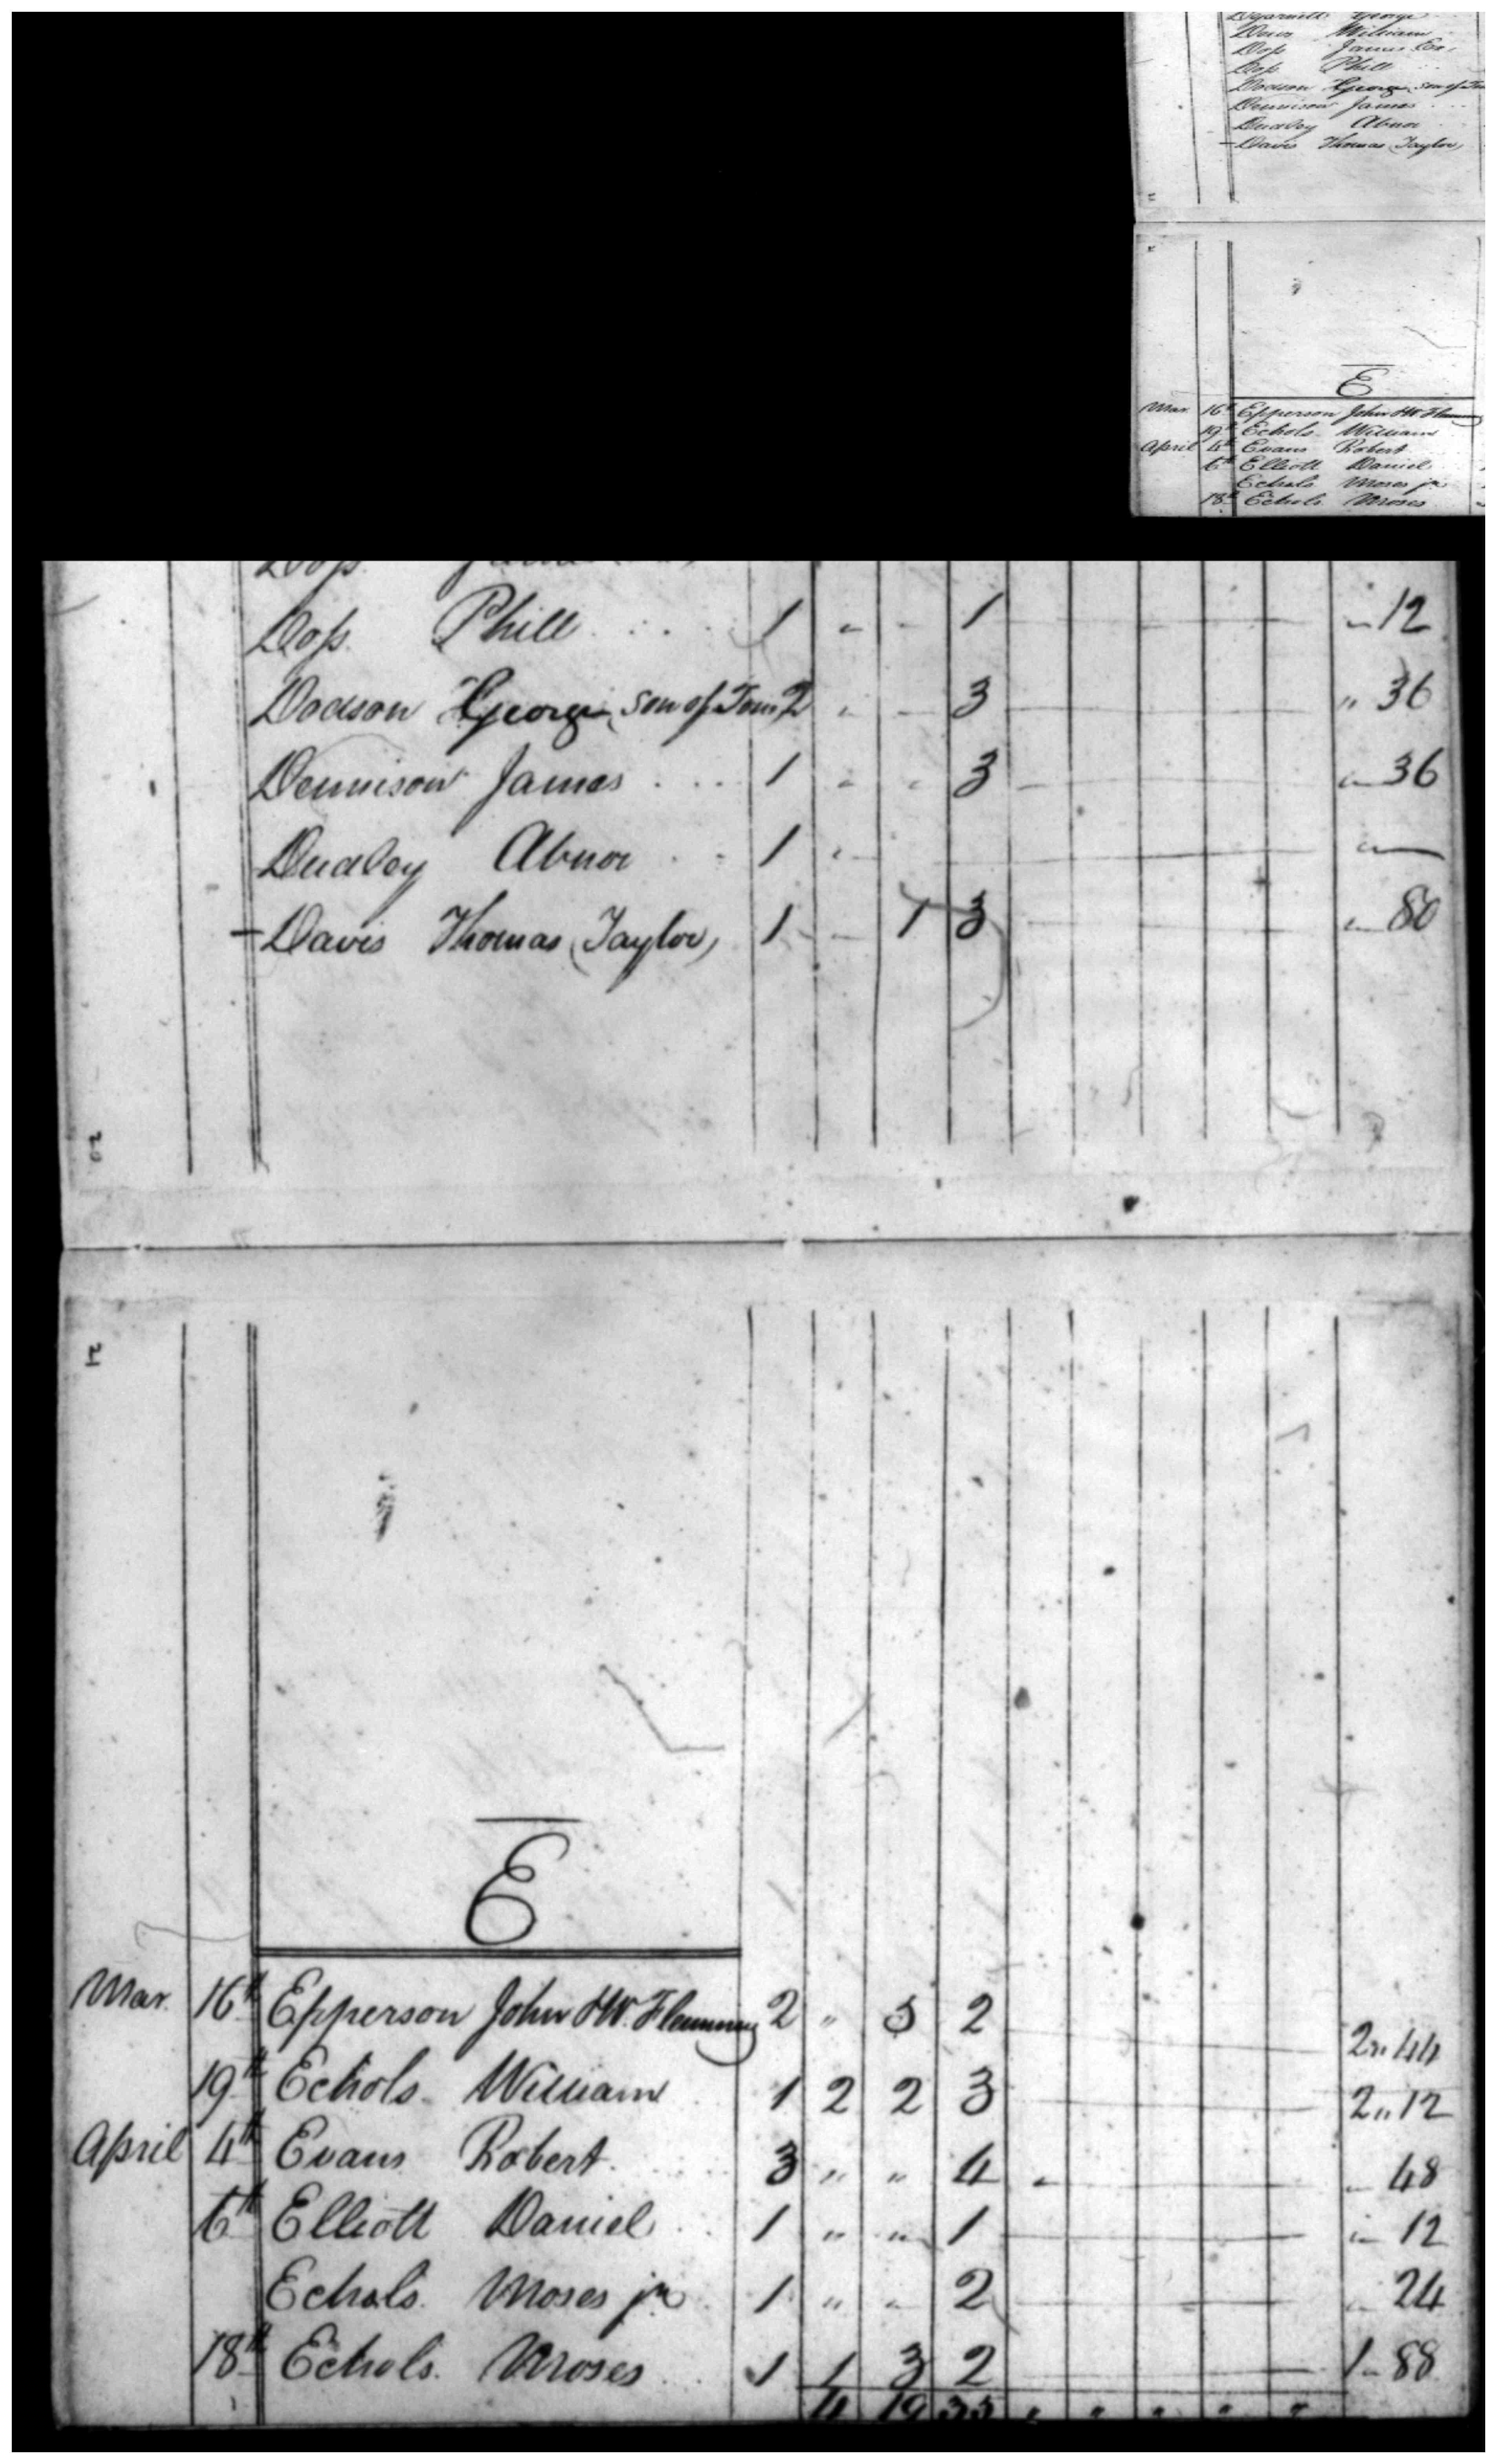 Degarnett George
Doss William
Doss James Ex.
Doss Phill
Dodson George, son of Tom
Dennison James
Dudley Abner
Davis Thomas (Taylor)
E
Mar. 16th Epperson John HW. Flemming
19th Echols William
April 4th Evans Robert
6th Elliott Daniel
Echols Moses jr
18th Echols Moses
Doss Phill 1 " " 1 " 12
Dodson George, son of Tom 2 " " 3 " 36
Dennison James 1 " " 3 " 36
Dudley Abner 1 " "
Davis Thomas (Taylor) 1 " 1 3 " 80
20
21
E
Mar. 16th Epperson John HW. Flemming 2 " 5 2 2 " 44
19th Echols William 1 2 2 3 2 " 12
April 4th Evans Robert 3 " " 4 " 48
6th Elliott Daniel 1 " " 1 " 12
Echols Moses jr 1 " " 2 " 24
18th Echols Moses 1 1 3 2 1 " 88
4 19 33 " " " " "